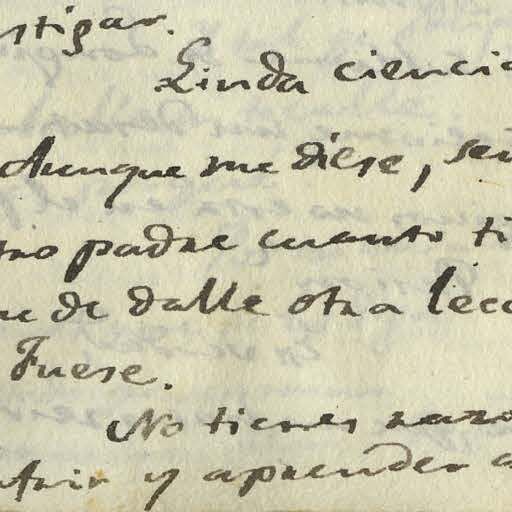 stigar.
Linda ciencia
Aunque me diese, señ
tro padre cuanto ti
ue de dalle otra lecc
Fuese.
No tienes razo
sufrir y aprender a